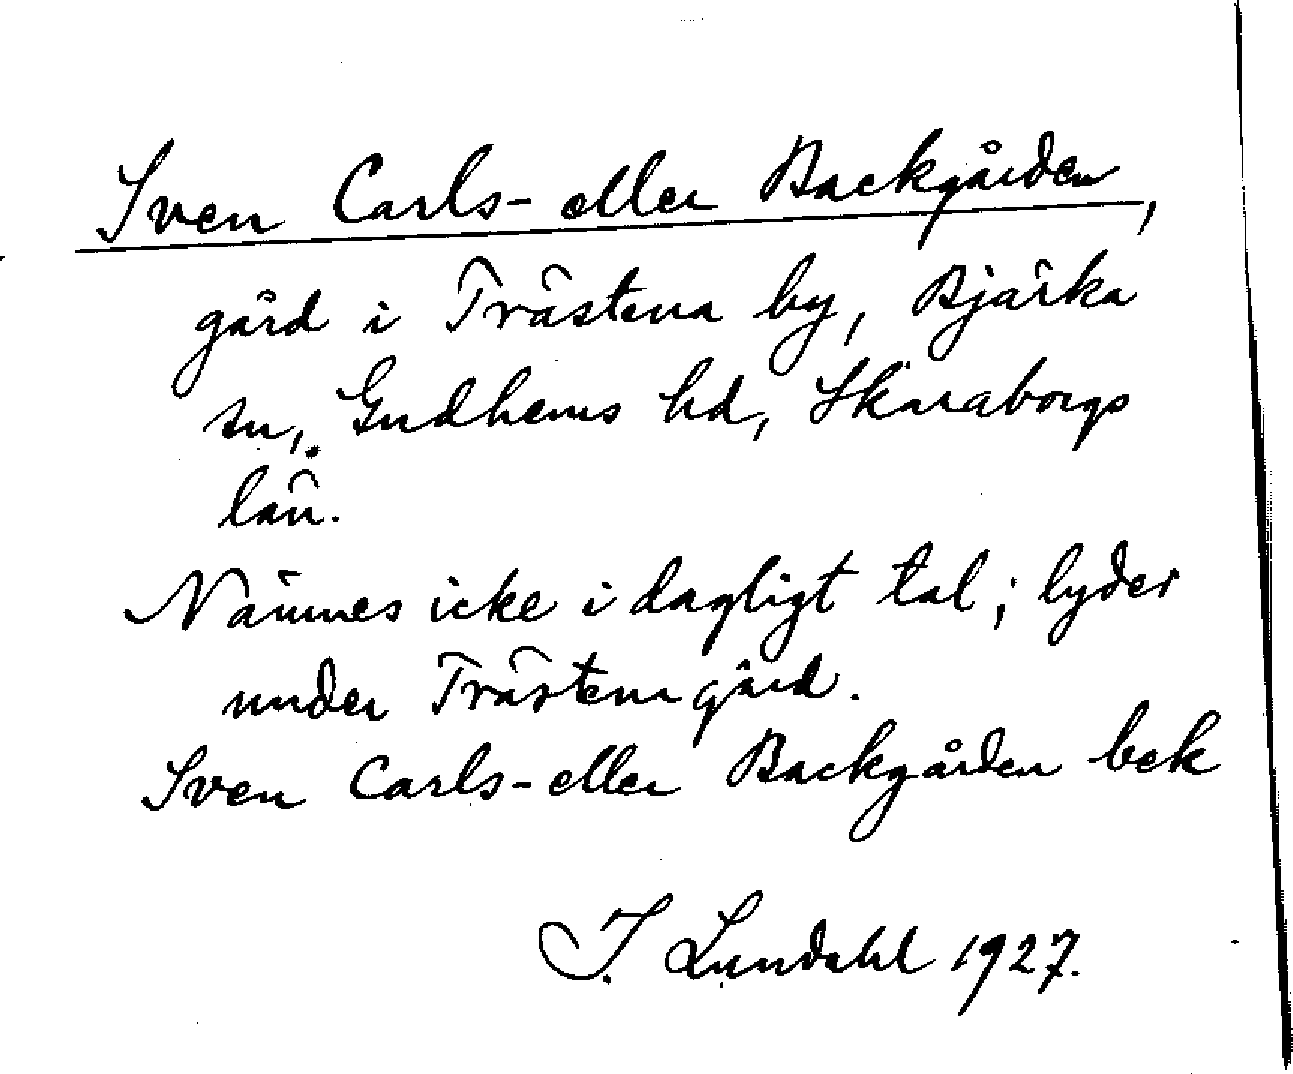 Sven Carls- eller Backgården,
gård i Trästena by, Bjärka
sn, Gudhems hd, Skaraborgs
län.
Nämnes icke i dagligt tal; lyder
under Trästena gård.
Sven Carls- eller Backgården bek
I. Lundahl 1927.